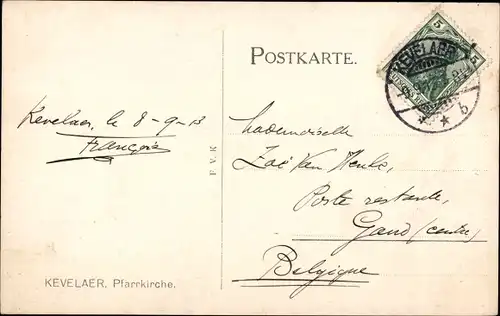 POSTKARTE.
5
5
KEVELAER
b
Kevelaer, le 8-9-13
François
Mademoiselle
Poste restante,
Gand (centre)
Belgique
F. V. K
KEVELAER, Pfarrkirche.